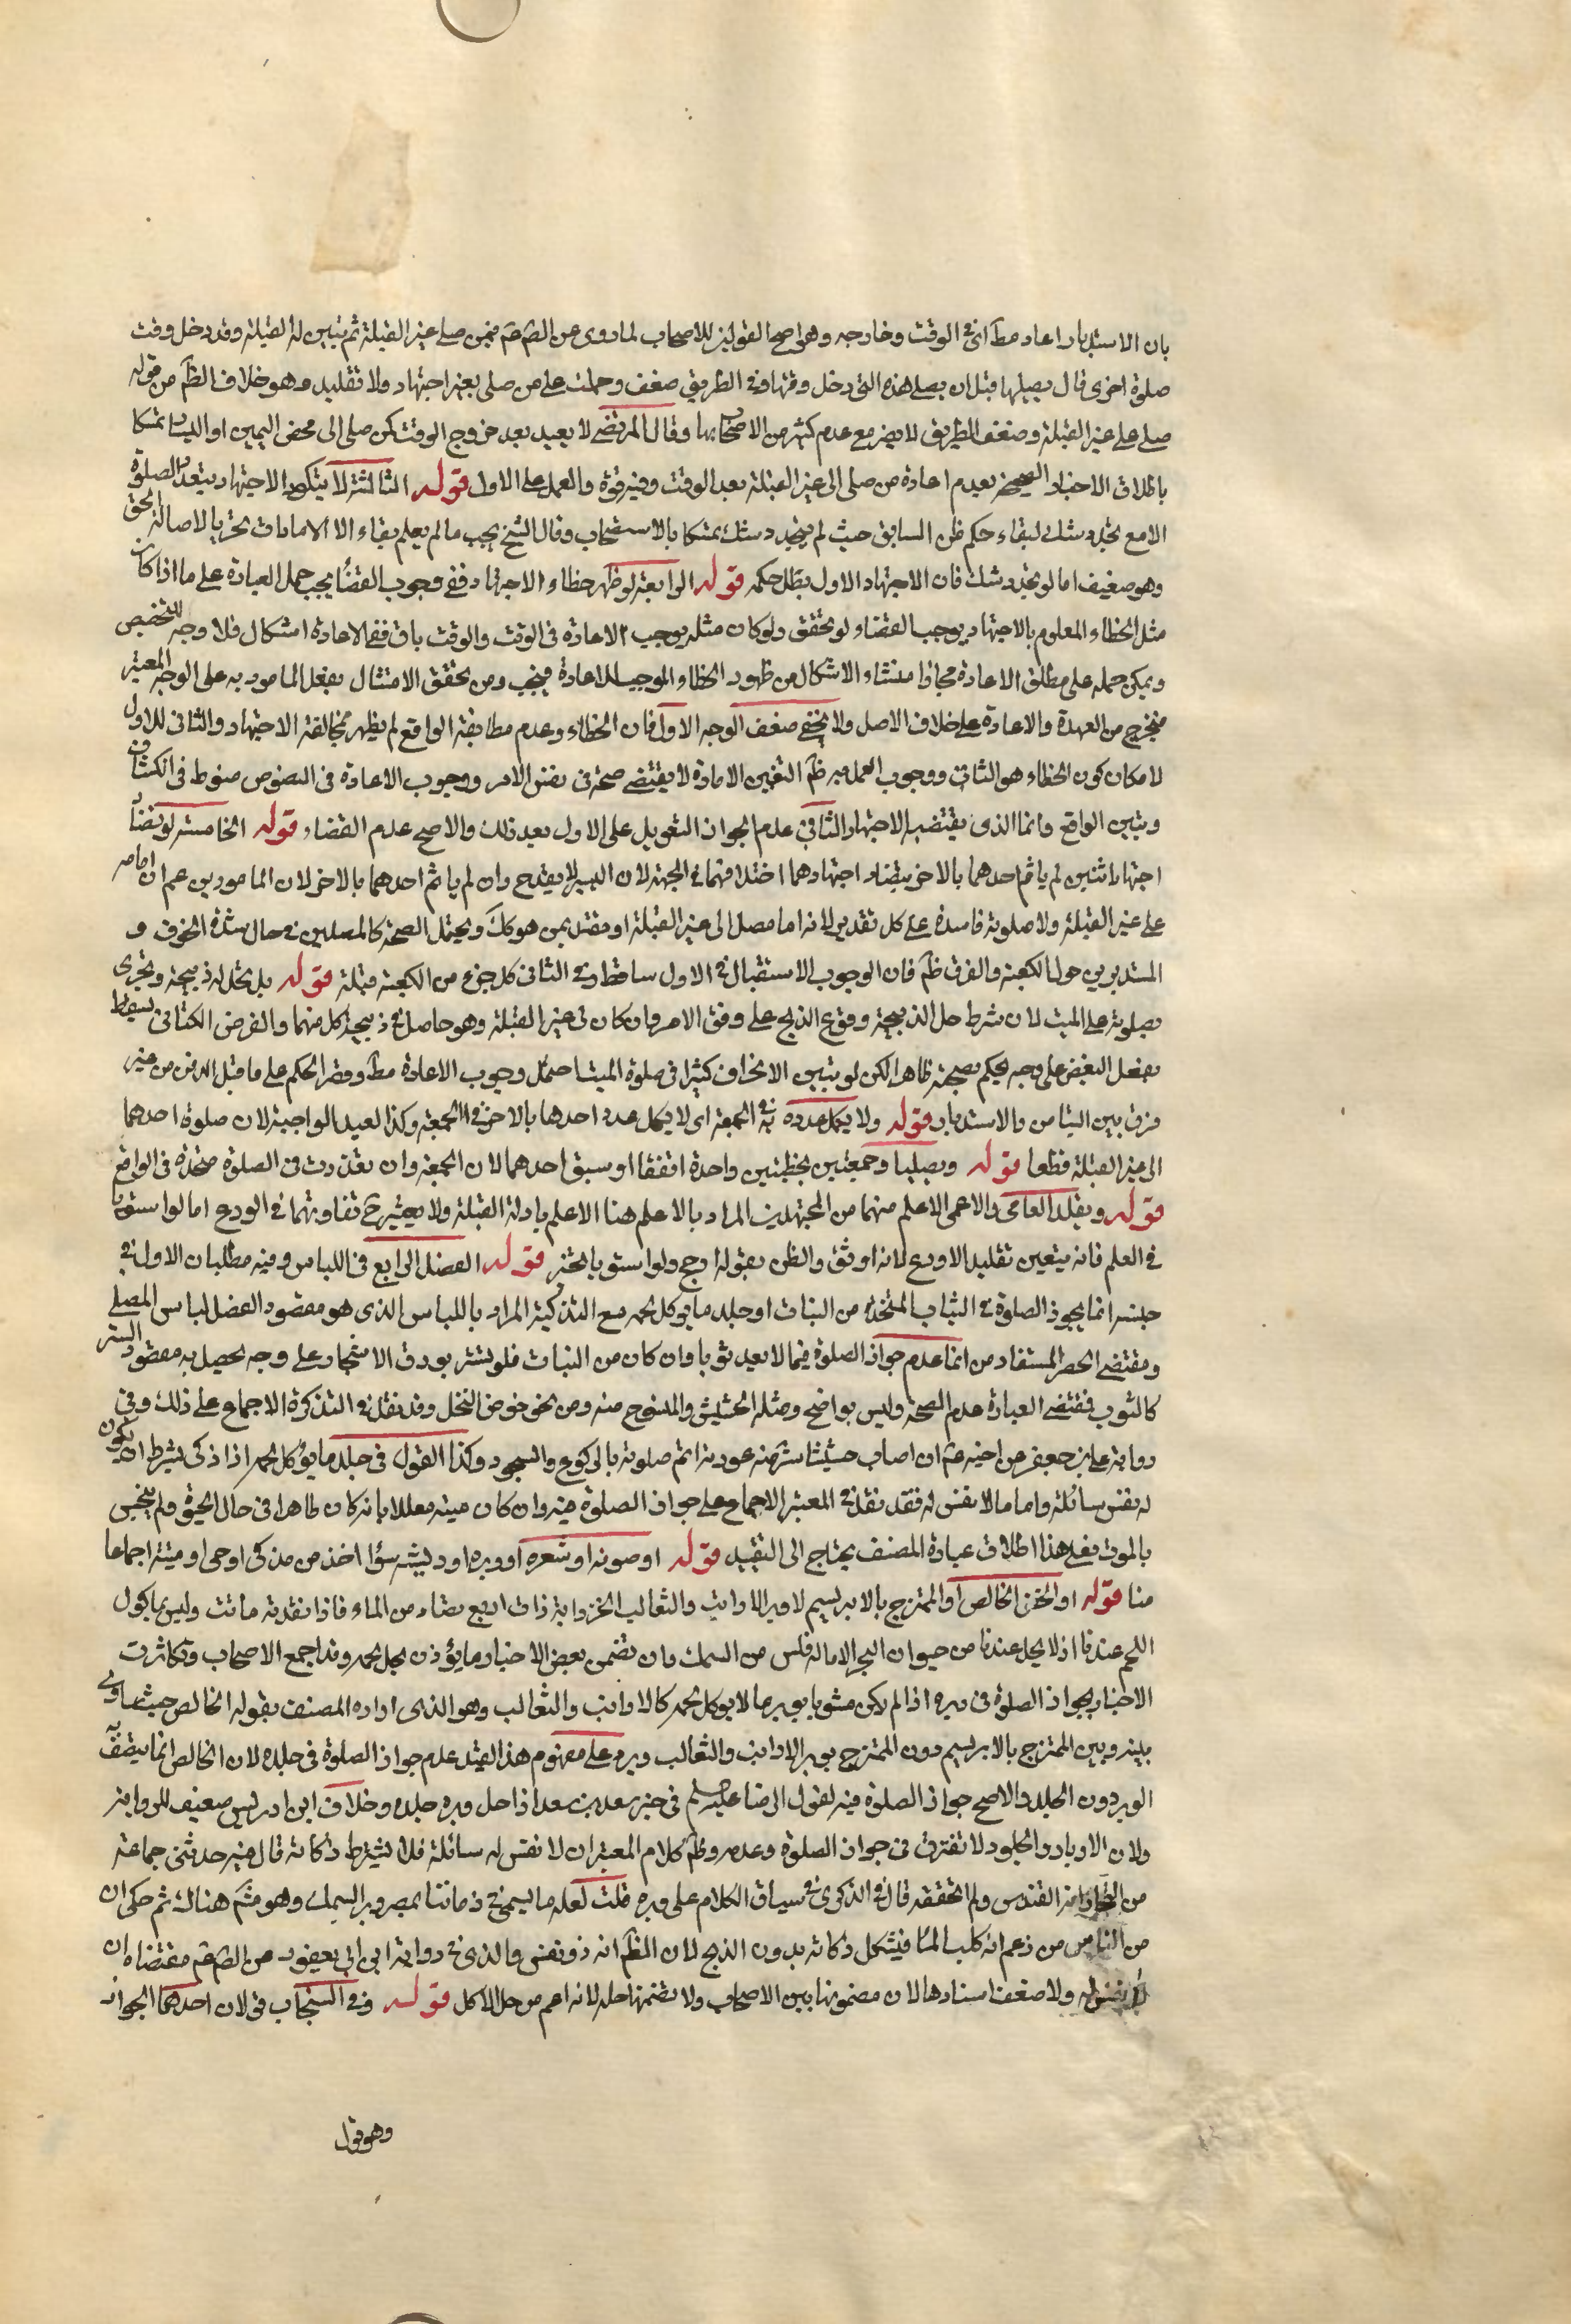 بان الاستدبار اعاد مطآ اى فى الوقت وخارجه وهو اصح القولين للاصحاب لما روى عن الصّ عم فيمن صلى على غير القبلة ثم تبين له القبلة وقد دخل وقت
صلوة اخرى قال يصليها قبل ان يصلى هذه التى دخل وقتها وفى الطريق ضعف وحملت على من صلى بغير اجتهاد ولا تقليد وهو خلاف الظآ من قوله
صلى على غير القبلة وضعف الطريق لا يضر مع عدم كثير من الاصحاب بها وقال المرتضى لا يعيد بعد خروج الوقت كمن صلى الى محض اليمين او اليسار تمسكا
باطلاق الاخبار الصحيحة بعدم اعادة من صلى الى غير القبلة بعد الوقت وفيه قوة والعمل على الاول قوله الثالثة لا يتكرر الاجتهاد بتعدد الصلوة
الا مع تجدد شك لبقاء حكم ظن السابق حيث لم يتجدد شك تمسكا بالاستصحاب وقال الشيخ يجب ما لم يعلم بقاء الامارات تحريا لاصابة الحق
وهو ضعيف اما لو تجدد شك فان الاجتهاد الاول بطل حكمه قوله الرابعة لو ظهر خطاء الاجتهاد ففى وجوب القضاء يجب حمل العبارة على ما اذا كان
مثل الخطاء المعلوم بالاجتهاد يوجب القضاء لو تحقق ولو كان مثله يوجب الاعادة فى الوقت والوقت باق ففى الاعادة اشكال فلا وجه للتخصيص
ويمكن حمله على مطلق الاعادة مجازا منشاء الاشكال من ظهور الخطاء الموجب للاعادة فيجب ومن تحقق الامتثال بفعل المامور به على الوجه المعتبر
فيخرج من العهدة والاعادة على خلاف الاصل ولا يخفى ضعف الوجه الاول فان الخطاء وعدم مطابقة الواقع لم يظهر بمخالفة الاجتهاد والثانى للاول
لامكان كون الخطاء هو الثانى ووجوب العمل به ظآ التغير الامارة لا يقتضى صحته فى نفس الامر ووجوب الاعادة فى النصوص منوط فى انكشاف
وتبين الواقع وانما الذى يقتضيه الاجتهاد الثانى عدم الجواز التعويل على الاول بعد ذلك والاصح عدم القضاء قوله الخامسة لو تضاد
اجتهاد اثنين لم ياتم احدهما بالاخر بتضاد اجتهادهما اختلافهما فى الجهة لان اليسير لا يقدح وان لم ياتم احدهما بالاخر لان المامور يزعم ان امامه
على غير القبلة ولا صلوته فاسدة على كل تقدير لانه اما مصل الى غير القبلة او مقتد بمن هو كك ويحتمل الصحة كالمصلين فى حال شدة الخوف و
المستديرين حول الكعبة والفرق ظآ فان الوجوب الاستقبال فى الاول ساقط وفى الثانى كل جزء من الكعبة قبلة قوله بل تحل له ذبيحته وتجزى
بصلوته على الميت لان شرط حل الذبيحة وقوع الذبح على وفق الامر وان كان فى غير القبلة وهو حاصل فى ذبيحة كل منهما والفرض الكفائى يسقط
بفعل البعض على وجه يحكم بصحته ظاهرا لكن لو تبين الانحراف كثيرا فى صلوة الميت احتمل وجوب الاعادة مطآ وقصر الحكم على ما قبل الدفن من غير
فرق بين التيامن والاستدبار قوله ولا يكمل عدده به فى الجمعة اى لا يكمل عدد احدهما بالاخر فى الجمعة وكذا العيد الواجبة لان صلوة احدهما
الى غير القبلة قطعا قوله ويصليا وجمعتين بخطبتين واحدة اتفقا او سبق احدهما لان الجمعة وان تعددت فى الصلوة متحدة فى الواقع
قوله ويقلد العامى والاعمى الاعلم منهما من المجتهدين المراد بالاعلم هنا الاعلم بادلة القبلة ولا يعتبر ح تفاوتهما فى الورع اما لو استويا
فى العلم فانه يتعين تقليد الاورع لانه اوثق والظن بقوله ارجح ولو استويا تخير قوله الفصل الرابع فى اللباس وفيه مطلبان الاول فى
جنسه انما يجوز الصلوة فى الثياب المتخذة من النبات او جلد ما يوكل لحمه مع التذكية المراد باللباس الذى هو مقصود الفصل لباس المصلى
ومقتضى الحصر المستفاد من انما عدم جواز الصلوة فيما لا يعد ثوبا وان كان من النبات فلو تستر بورق الاشجار على وجه يحصل به مقصود الستر
كالثوب فمقتضى العبارة عدم الصحة وليس بواضح ومثله الحشيش والمنسوج منه ومن نحو خوص النخل وقد نقل فى التذكرة الاجماع على ذلك وفى
رواية على بن جعفر عن اخيه عم ان اصاب حشيشا ستر منه عورته اتم صلوته بالركوع والسجود وكذا القول فى جلد ما يؤكل لحمه اذا ذكى بشرط ان يكون
له نفس سائلة واما ما لا نفس له فقد نقل فى المعتبر الاجماع على جواز الصلوة فيه وان كان ميتة معللا بانه كان طاهرا فى حال الحيوة ولم ينجس
بالموت فعلى هذا اطلاق عبارة المصنف يحتاج الى التقييد قوله او صوفه او شعره او وبره او ريشه سؤا اخذ من مذكى او حى او ميتة اجماعا
منا قوله او الخز الخالص او الممتزج بالابريسم لا وبر الارانب والثعالب الخز دابة ذات اربع تصاد من الماء فاذا فقدته ماتت وليس ماكول
اللحم عندنا اذ لا يحل عندنا من حيوان البحر الا ما له فلس من السمك وان تضمن بعض الاخبار ما يؤذن بحل لحمه وقد اجمع الاصحاب وتكاثرت
الاخبار بجواز الصلوة فى وبره اذا لم يكن مشوبا بوبر ما لا يوكل لحمه كالارانب والثعالب وهو الذى اراده المصنف بقوله الخالص حيث ساوى
بينه وبين الممتزج بالابريسم دون الممتزج بوبر الارانب والثعالب ويرد على مفهوم هذا القيد عدم جواز الصلوة فى جلده لان الخالص انما يتصف
الوبر دون الجلد والاصح جواز الصلوة فيه لقول الرضا عليه السلم فى خبر سعد بن سعد اذا حل وبره حل جلده وخلاف ابن ادريس ضعيف للرواية
ولان الاوبار والجلود لا تفترق فى جواز الصلوة وعدمه وظآ كلام المعتبر ان لا نفس له سائلة فلا يشترط ذكاته قال فيه حدثنى جماعة
من التجار انه القندس ولم اتحققه قال فى الذكرى فى سياق الكلام على وبره قلت لعله ما يسمى فى زماننا بمصر وبر السمك وهو مشهور هناك ثم حكى ان
من الناس من زعم انه كلب الماء فيشكل ذكاته بدون الذبح لان الظآ انه ذو نفس والذى فى رواية ابن ابى يعفور عن الصّ عم مقتضاه ان
لا نفس له ولا ضعف اسنادها لان مضمونها بين الاصحاب ولا تضمنها حله لانه اعم من حل الاكل قوله وفى السنجاب ق لان احدهما الجواز
وهو قول